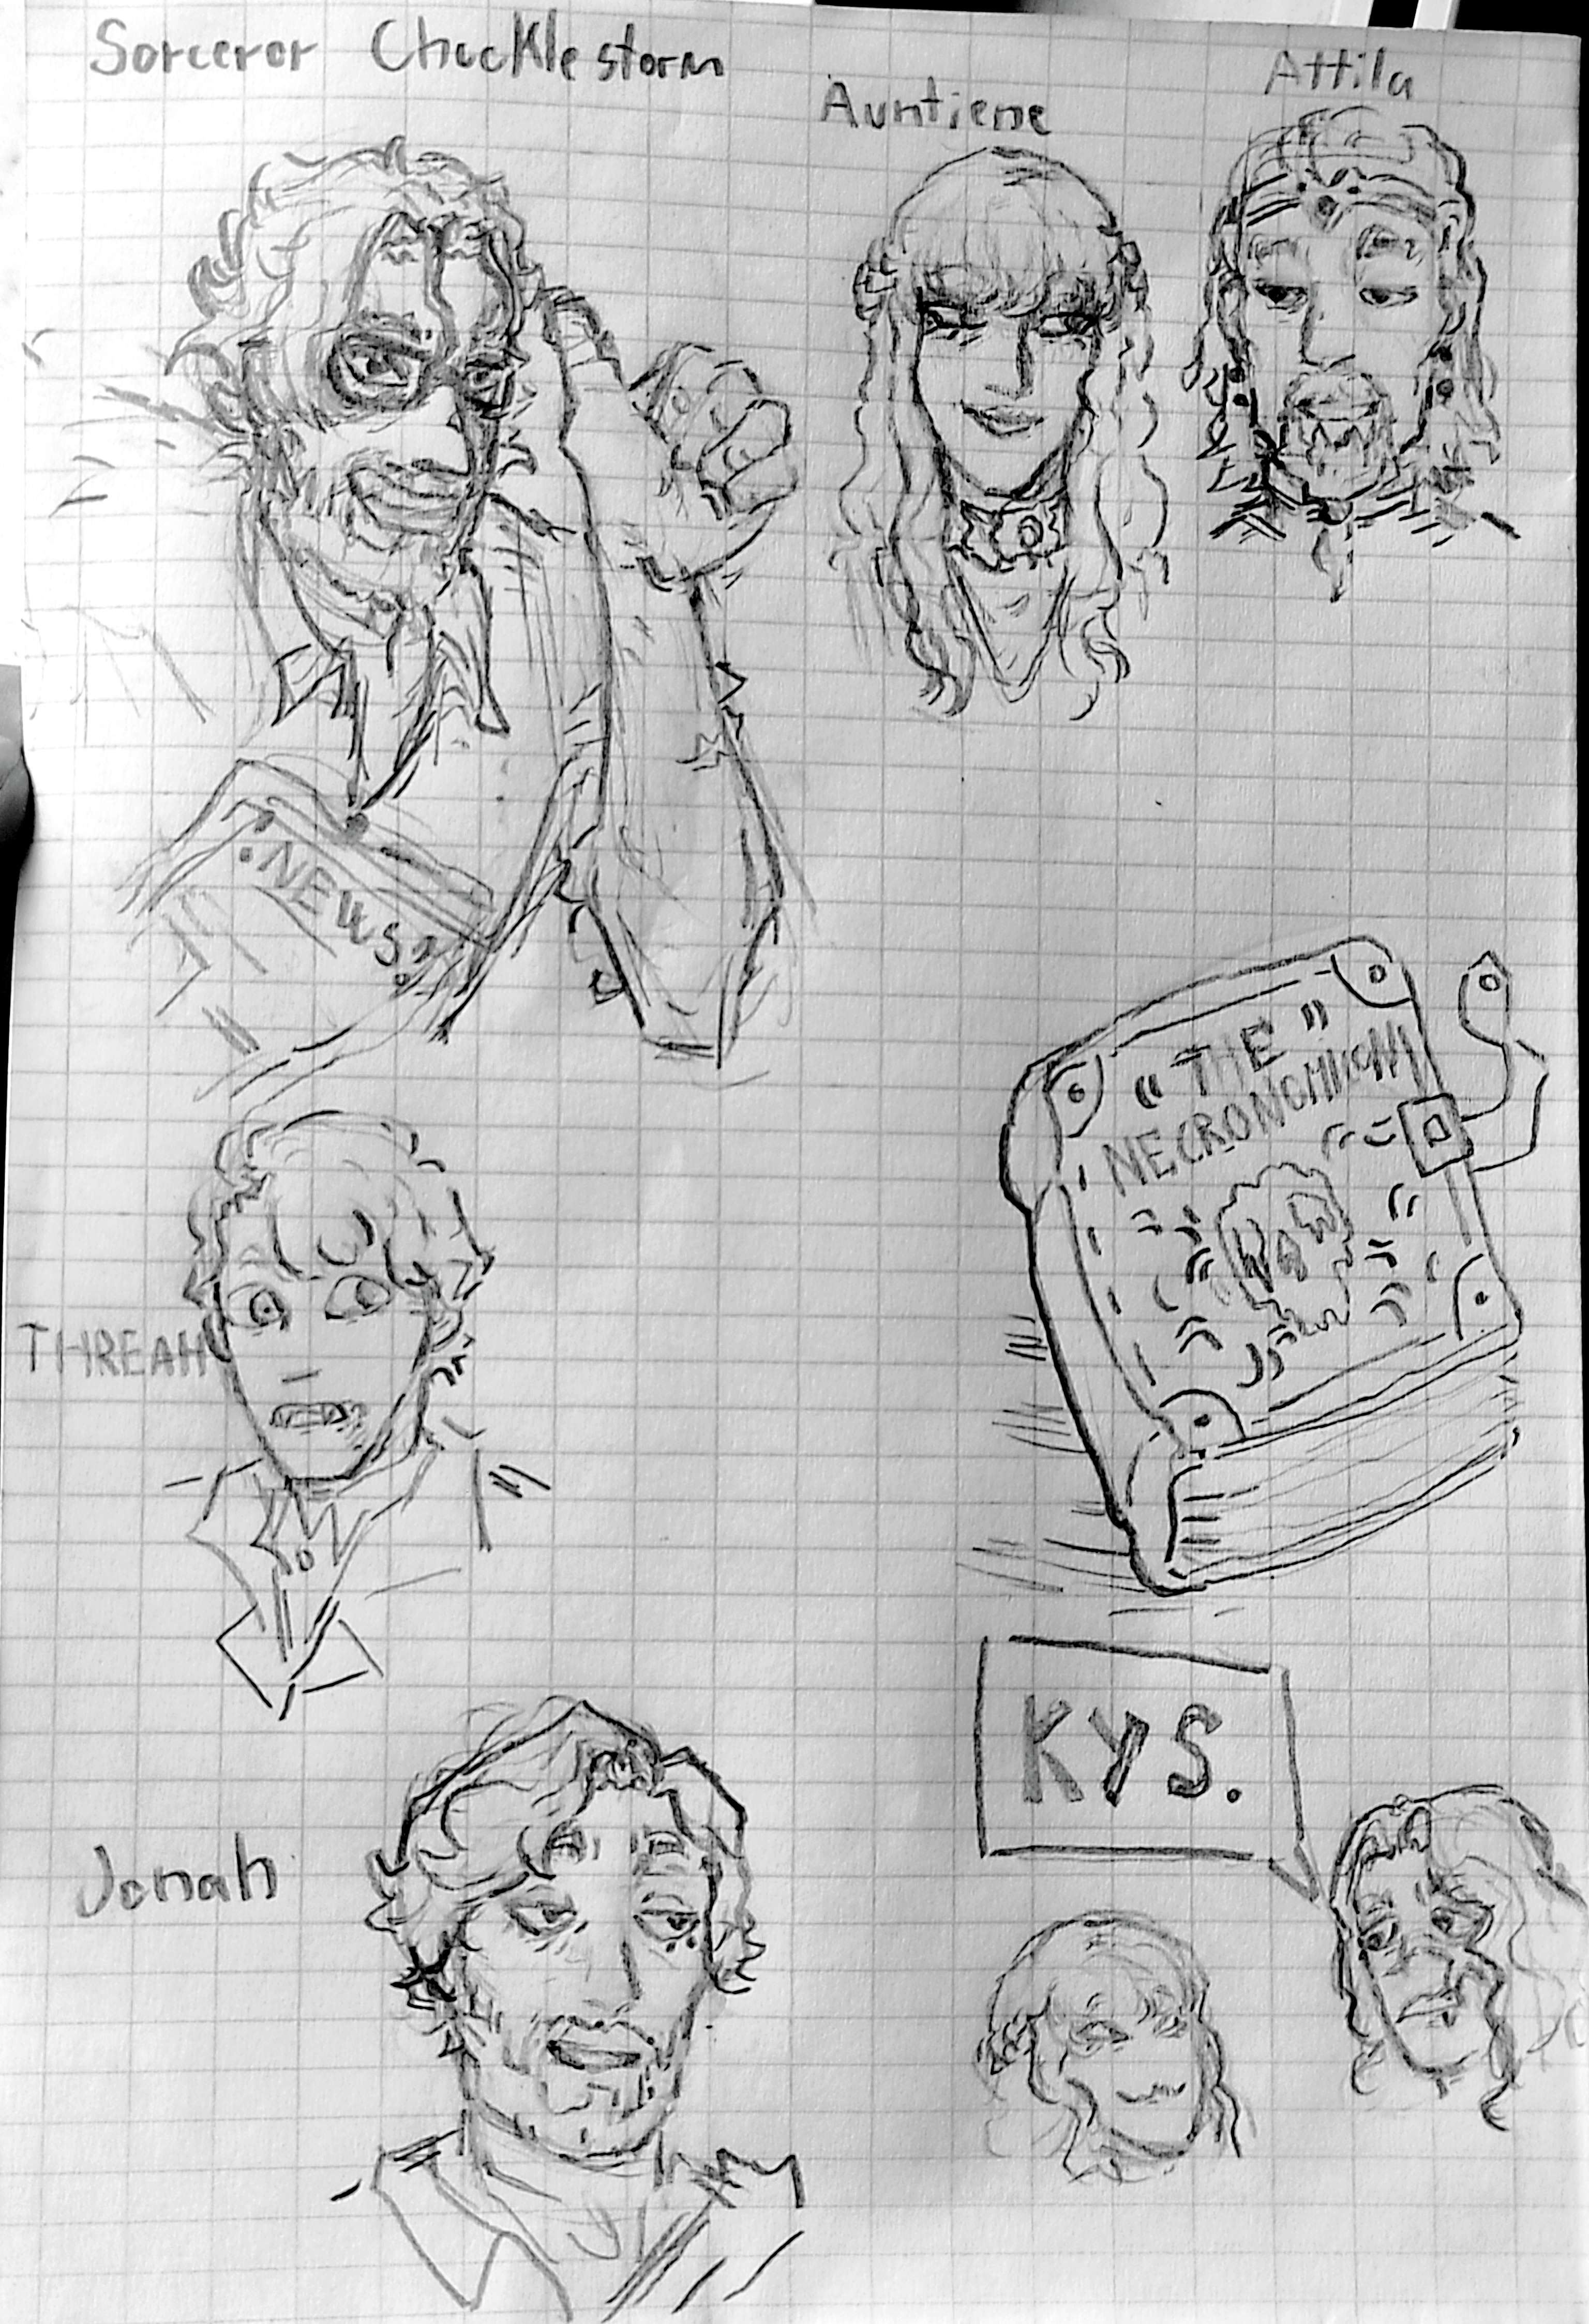 Sorceror Chucklestorm
Auntiene
Attila
NEWS
"THE"
NECRONOMICON
THREAH
KYS.
Jonah